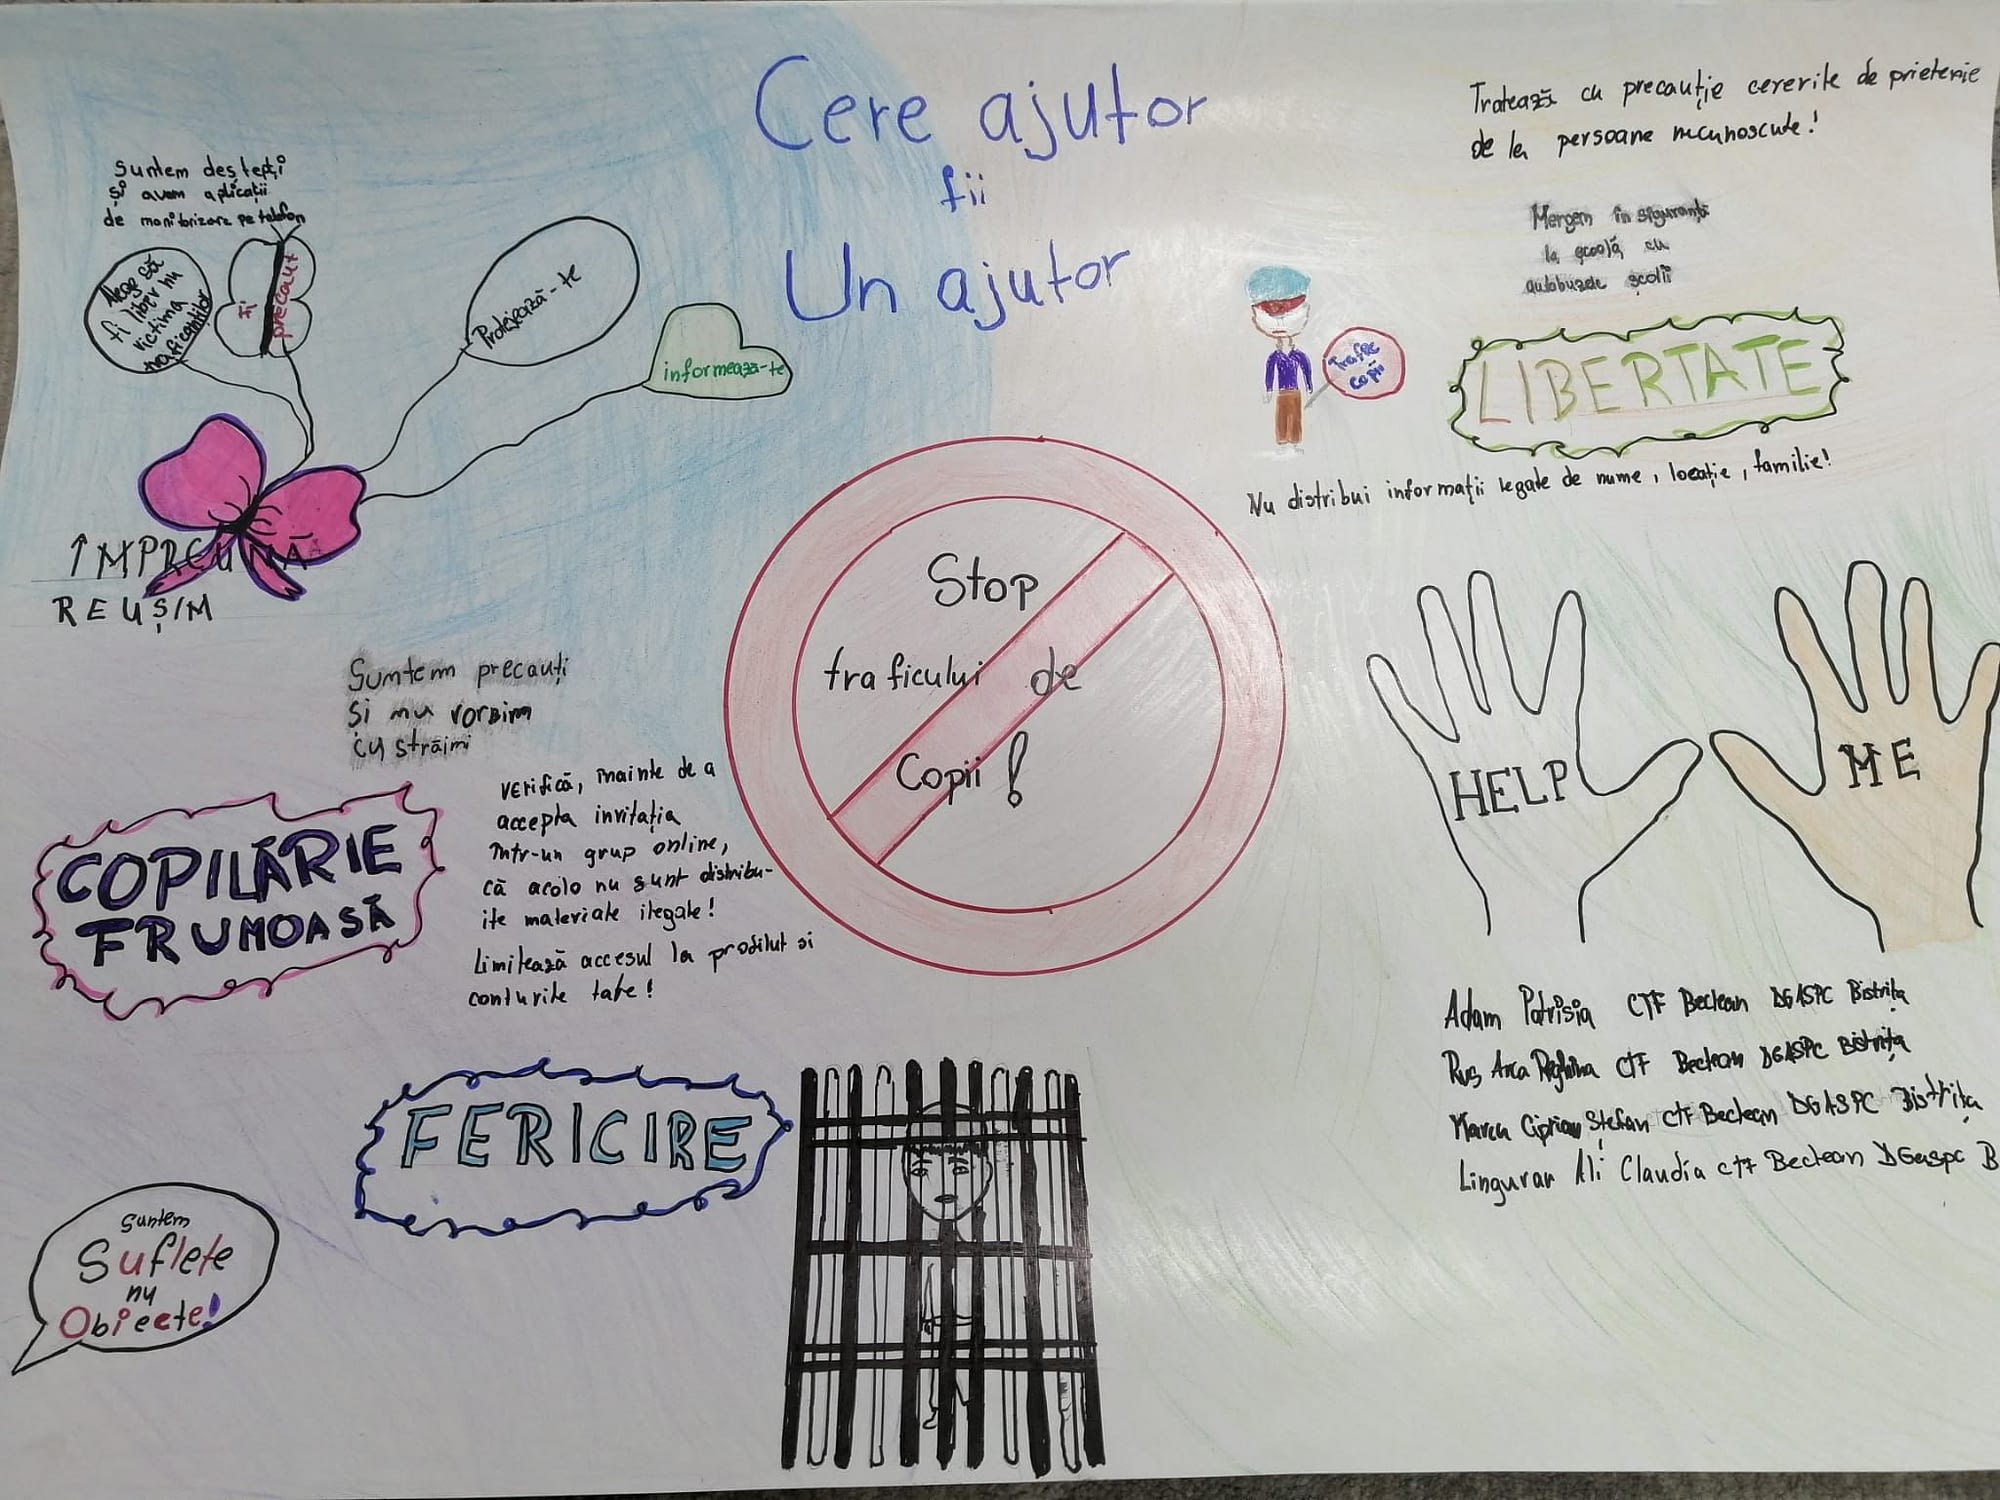 Cere ajutor
fii
Un ajutor
Tratează cu precauție cererile de prietenie
de la persoane necunoscute!
Suntem deștepți
și avem aplicații
de monitorizare pe telefon
Aleg să
fi liber nu
victima
traficanților
fi
precaut
Protejează-te
informează-te
Mergem în siguranță
la școală cu
autobuzele școlii
Trafic
copii
LIBERTATE
Nu distribui informații legate de nume, locație, familie!
ÎMPREUNĂ
REUȘIM
Stop
traficului de
Copii!
HELP
ME
Suntem precauți
Și nu vorbim
cu străini
verifică, înainte de a
accepta invitația
într-un grup online,
că acolo nu sunt distribu-
ite materiale ilegale!
Limitează accesul la profilul și
conturile tale!
COPILĂRIE
FRUMOASĂ
Adam Patrisia CTF Beclean DGASPC Bistrița
Ruș Anca Reghina CTF Beclean DGASPC Bistrița
Marcu Ciprian Ștefan CTF Beclean DGASPC Bistrița
Lingurar Ali Claudia CTF Beclean DGaspc B
FERICIRE
Suntem
Suflete
nu
Obiecte!